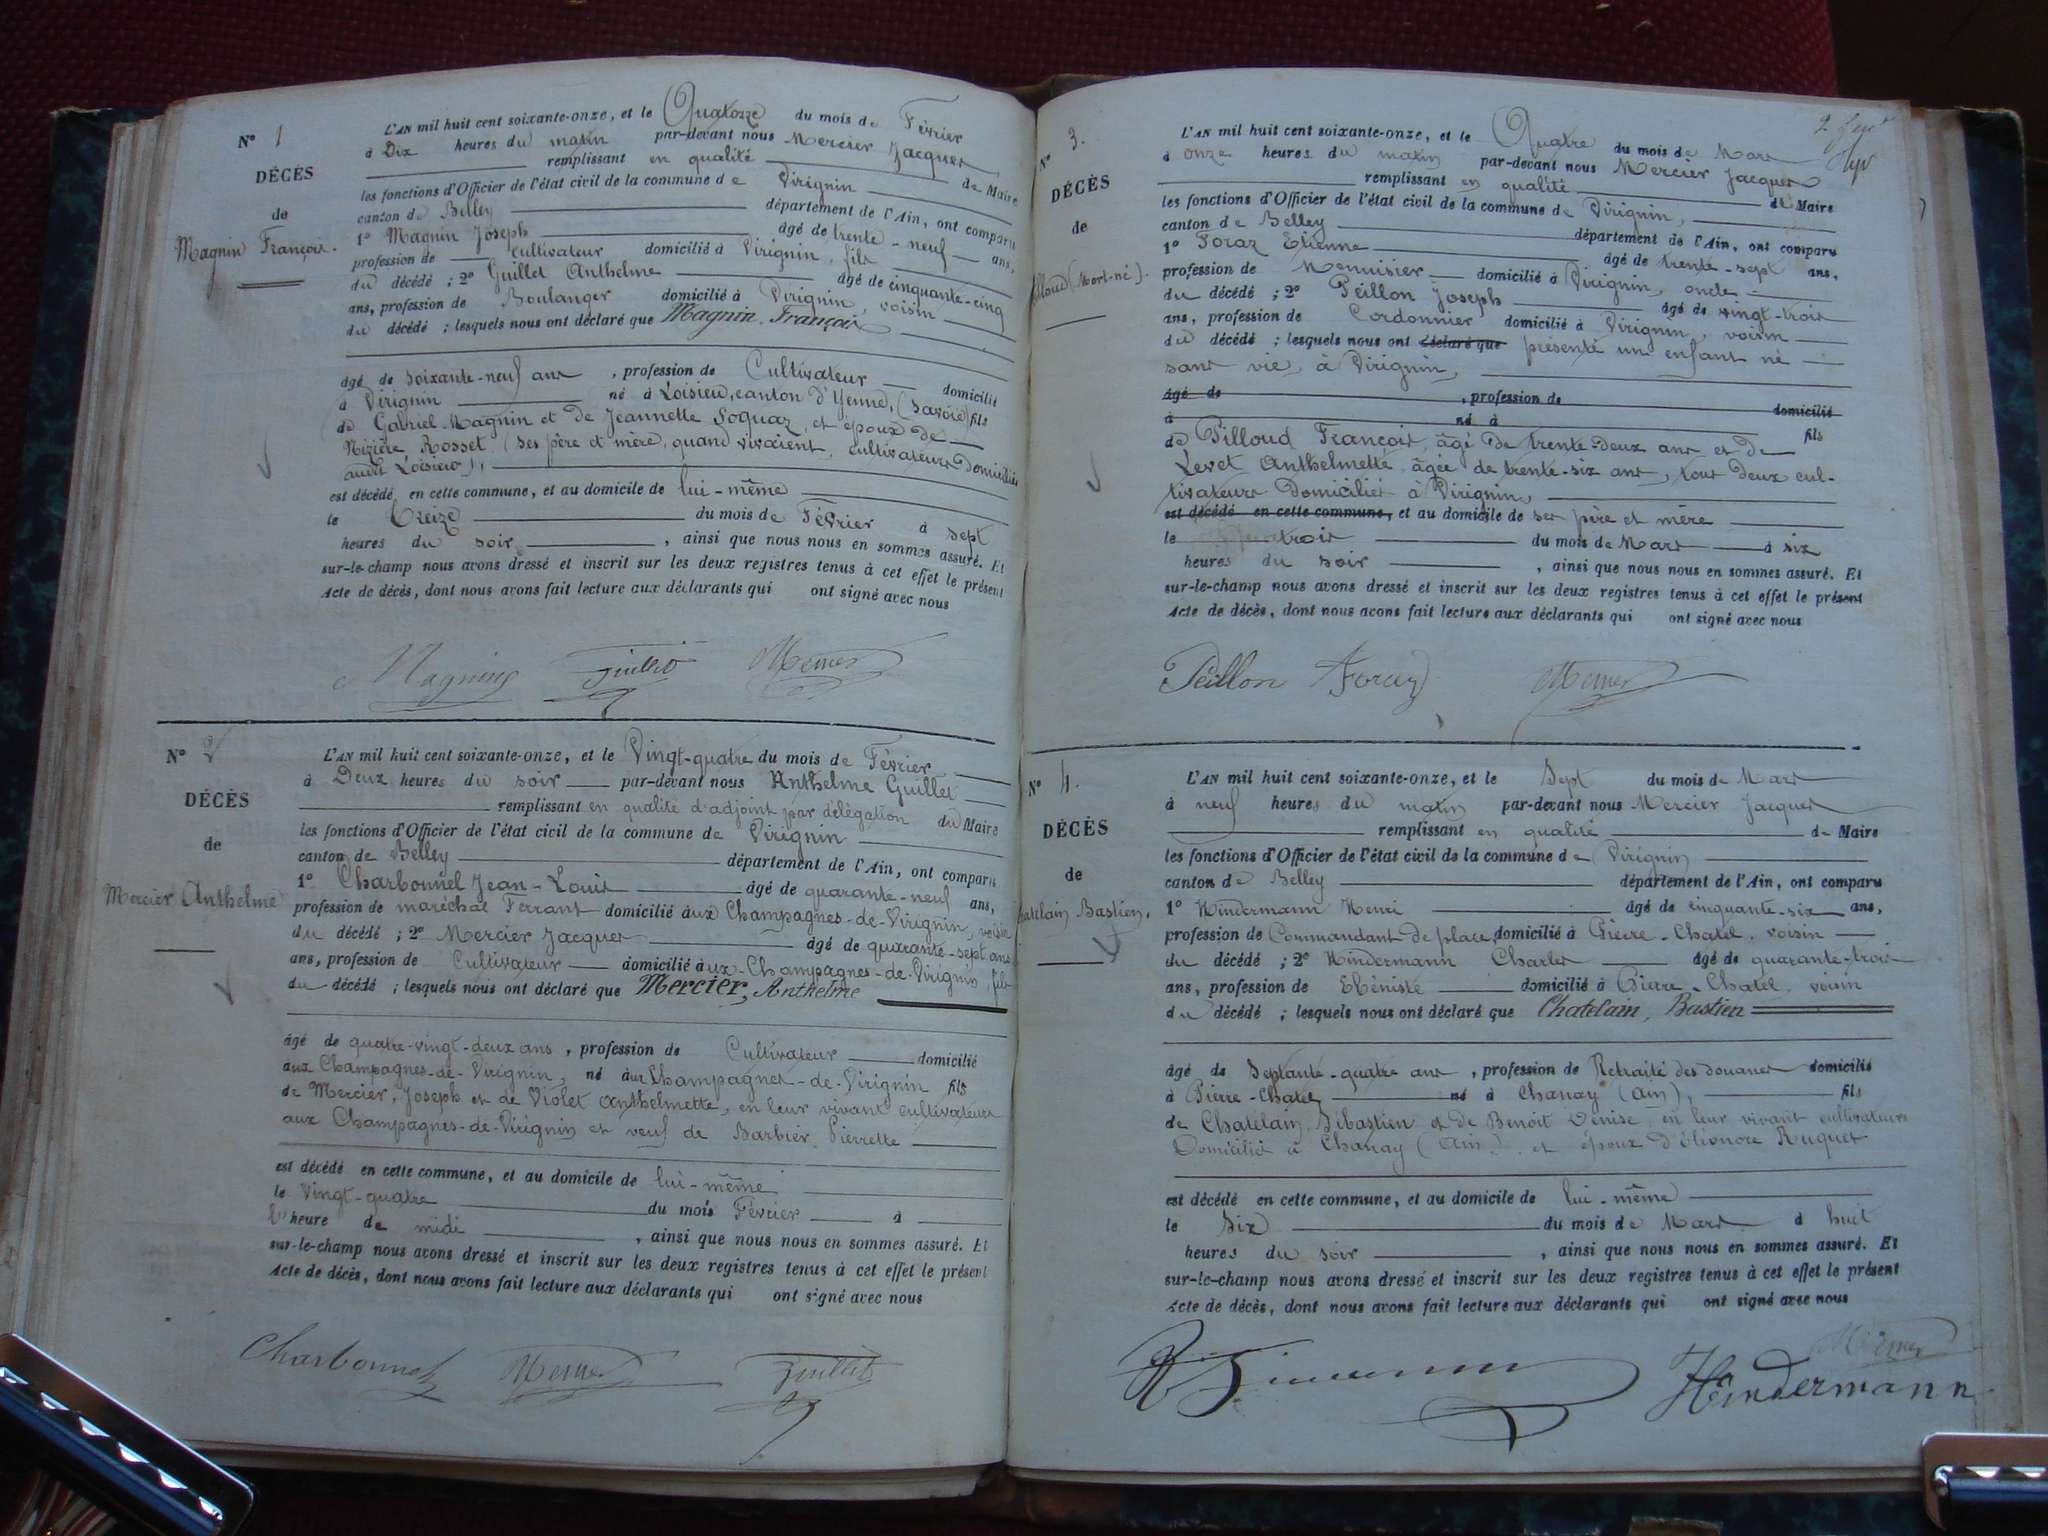 N° 1
DÉCÈS
de
Magnin François.
L'AN mil huit cent soixante-onze, et le Quatorze du mois de Février
à Dix heures du matin par-devant nous Mercier Jacques
remplissant en qualité de Maire
les fonctions d'Officier de l'état civil de la commune de Virignin
canton de Belley département de l'Ain, ont comparu
1° Magnin Joseph âgé de trente-neuf ans,
profession de cultivateur domicilié à Virignin, fils
du décédé ; 2° Guillet Anthelme âgé de cinquante-cinq
ans, profession de Boulanger domicilié à Virignin, voisin
du décédé ; lesquels nous ont déclaré que Magnin François
âgé de soixante-neuf ans, profession de Cultivateur domicilié
à Virignin né à Loisieu, canton d'Yenne, (Savoie) fils
de Gabriel Magnin et de Jeannette Soquaz, et époux de
Nizière Rosset (ses père et mère, quand vivaient, cultivateurs domiciliés
audit Loisieu),
est décédé en cette commune, et au domicile de lui-même
le treize du mois de Février à sept
heures du soir, ainsi que nous nous en sommes assuré. Et
sur-le-champ nous avons dressé et inscrit sur les deux registres tenus à cet effet le présent
Acte de décès, dont nous avons fait lecture aux déclarants qui ont signé avec nous
Magnin Guillet Mercier
N° 2
DÉCÈS
de
Mercier Anthelme
L'AN mil huit cent soixante-onze, et le Vingt-quatre du mois de Février
à Deux heures du soir par-devant nous Anthelme Guillet
remplissant en qualité d'adjoint par délégation du Maire
les fonctions d'Officier de l'état civil de la commune de Virignin
canton de Belley département de l'Ain, ont comparu
1° Charbonnel Jean-Louis âgé de quarante-neuf ans,
profession de maréchal Ferrant domicilié aux Champagnes-de-Virignin, voisin
du décédé ; 2° Mercier Jacques âgé de quarante-sept ans
ans, profession de Cultivateur domicilié aux Champagnes-de-Virignin, fils
du décédé ; lesquels nous ont déclaré que Mercier, Anthelme
âgé de quatre-vingt-deux ans, profession de Cultivateur domicilié
aux Champagnes-de-Virignin, né aux Champagnes-de-Virignin fils
de Mercier, Joseph et de Violet Anthelmette, en leur vivant cultivateurs
aux Champagnes-de-Virignin et veuf de Barbier Pierrette
est décédé en cette commune, et au domicile de lui-même
le vingt-quatre du mois Février à
l'heure de midi, ainsi que nous nous en sommes assuré. Et
sur-le-champ nous avons dressé et inscrit sur les deux registres tenus à cet effet le présent
Acte de décès, dont nous avons fait lecture aux déclarants qui ont signé avec nous
Charbonnel Mercier Guillet
N° 3.
DÉCÈS
de
(Mort-né).
L'AN mil huit cent soixante-onze, et le Quatre du mois de Mars
à onze heures du matin par-devant nous Mercier Jacques
remplissant en qualité de Maire
les fonctions d'Officier de l'état civil de la commune de Virignin,
canton de Belley département de l'Ain, ont comparu
1° Foraz Etienne âgé de trente-sept ans,
profession de Menuisier domicilié à Virignin, oncle
du décédé ; 2° Péillon Joseph âgé de vingt-trois
ans, profession de Cordonnier domicilié à Virignin, voisin
du décédé ; lesquels nous ont déclaré que présenté un enfant né
sans vie, à Virignin,
âgé de , profession de domicilié
à né à fils
de Pilloud François, âgé de trente-deux ans et de
Levet Anthelmette, âgée de trente-six ans, tous deux cul-
tivateurs domiciliés à Virignin,
est décédé en cette commune, et au domicile de ses père et mère
le trois du mois de Mars à six
heures du soir, ainsi que nous nous en sommes assuré. Et
sur-le-champ nous avons dressé et inscrit sur les deux registres tenus à cet effet le présent
Acte de décès, dont nous avons fait lecture aux déclarants qui ont signé avec nous
Péillon Foraz Mercier
N° 4.
DÉCÈS
de
Bastien.
L'AN mil huit cent soixante-onze, et le Sept du mois de Mars
à neuf heures du matin par-devant nous Mercier Jacques
remplissant en qualité de Maire
les fonctions d'Officier de l'état civil de la commune de Virignin
canton de Belley département de l'Ain, ont comparu
1° Hindermann Henri âgé de cinquante-six ans,
profession de Commandant de place, domicilié à Pierre-Chatel, voisin
du décédé ; 2° Hindermann Charles âgé de quarante-trois
ans, profession de Ebéniste domicilié à Pierre-Chatel, voisin
du décédé ; lesquels nous ont déclaré que Chatelain, Bastien
âgé de Septante-quatre ans, profession de Retraité des douanes domicilié
à Pierre-Chatel né à Chanay (Ain), fils
de Chatelain, Sébastien et de Benoit Denise, en leur vivant cultivateurs
Domiciliés à Chanay (Ain), et époux d'Eléonore Ruguet
est décédé en cette commune, et au domicile de lui-même
le Six du mois de Mars à huit
heures du soir, ainsi que nous nous en sommes assuré. Et
sur-le-champ nous avons dressé et inscrit sur les deux registres tenus à cet effet le présent
Acte de décès, dont nous avons fait lecture aux déclarants qui ont signé avec nous
Mercier
Hindermann